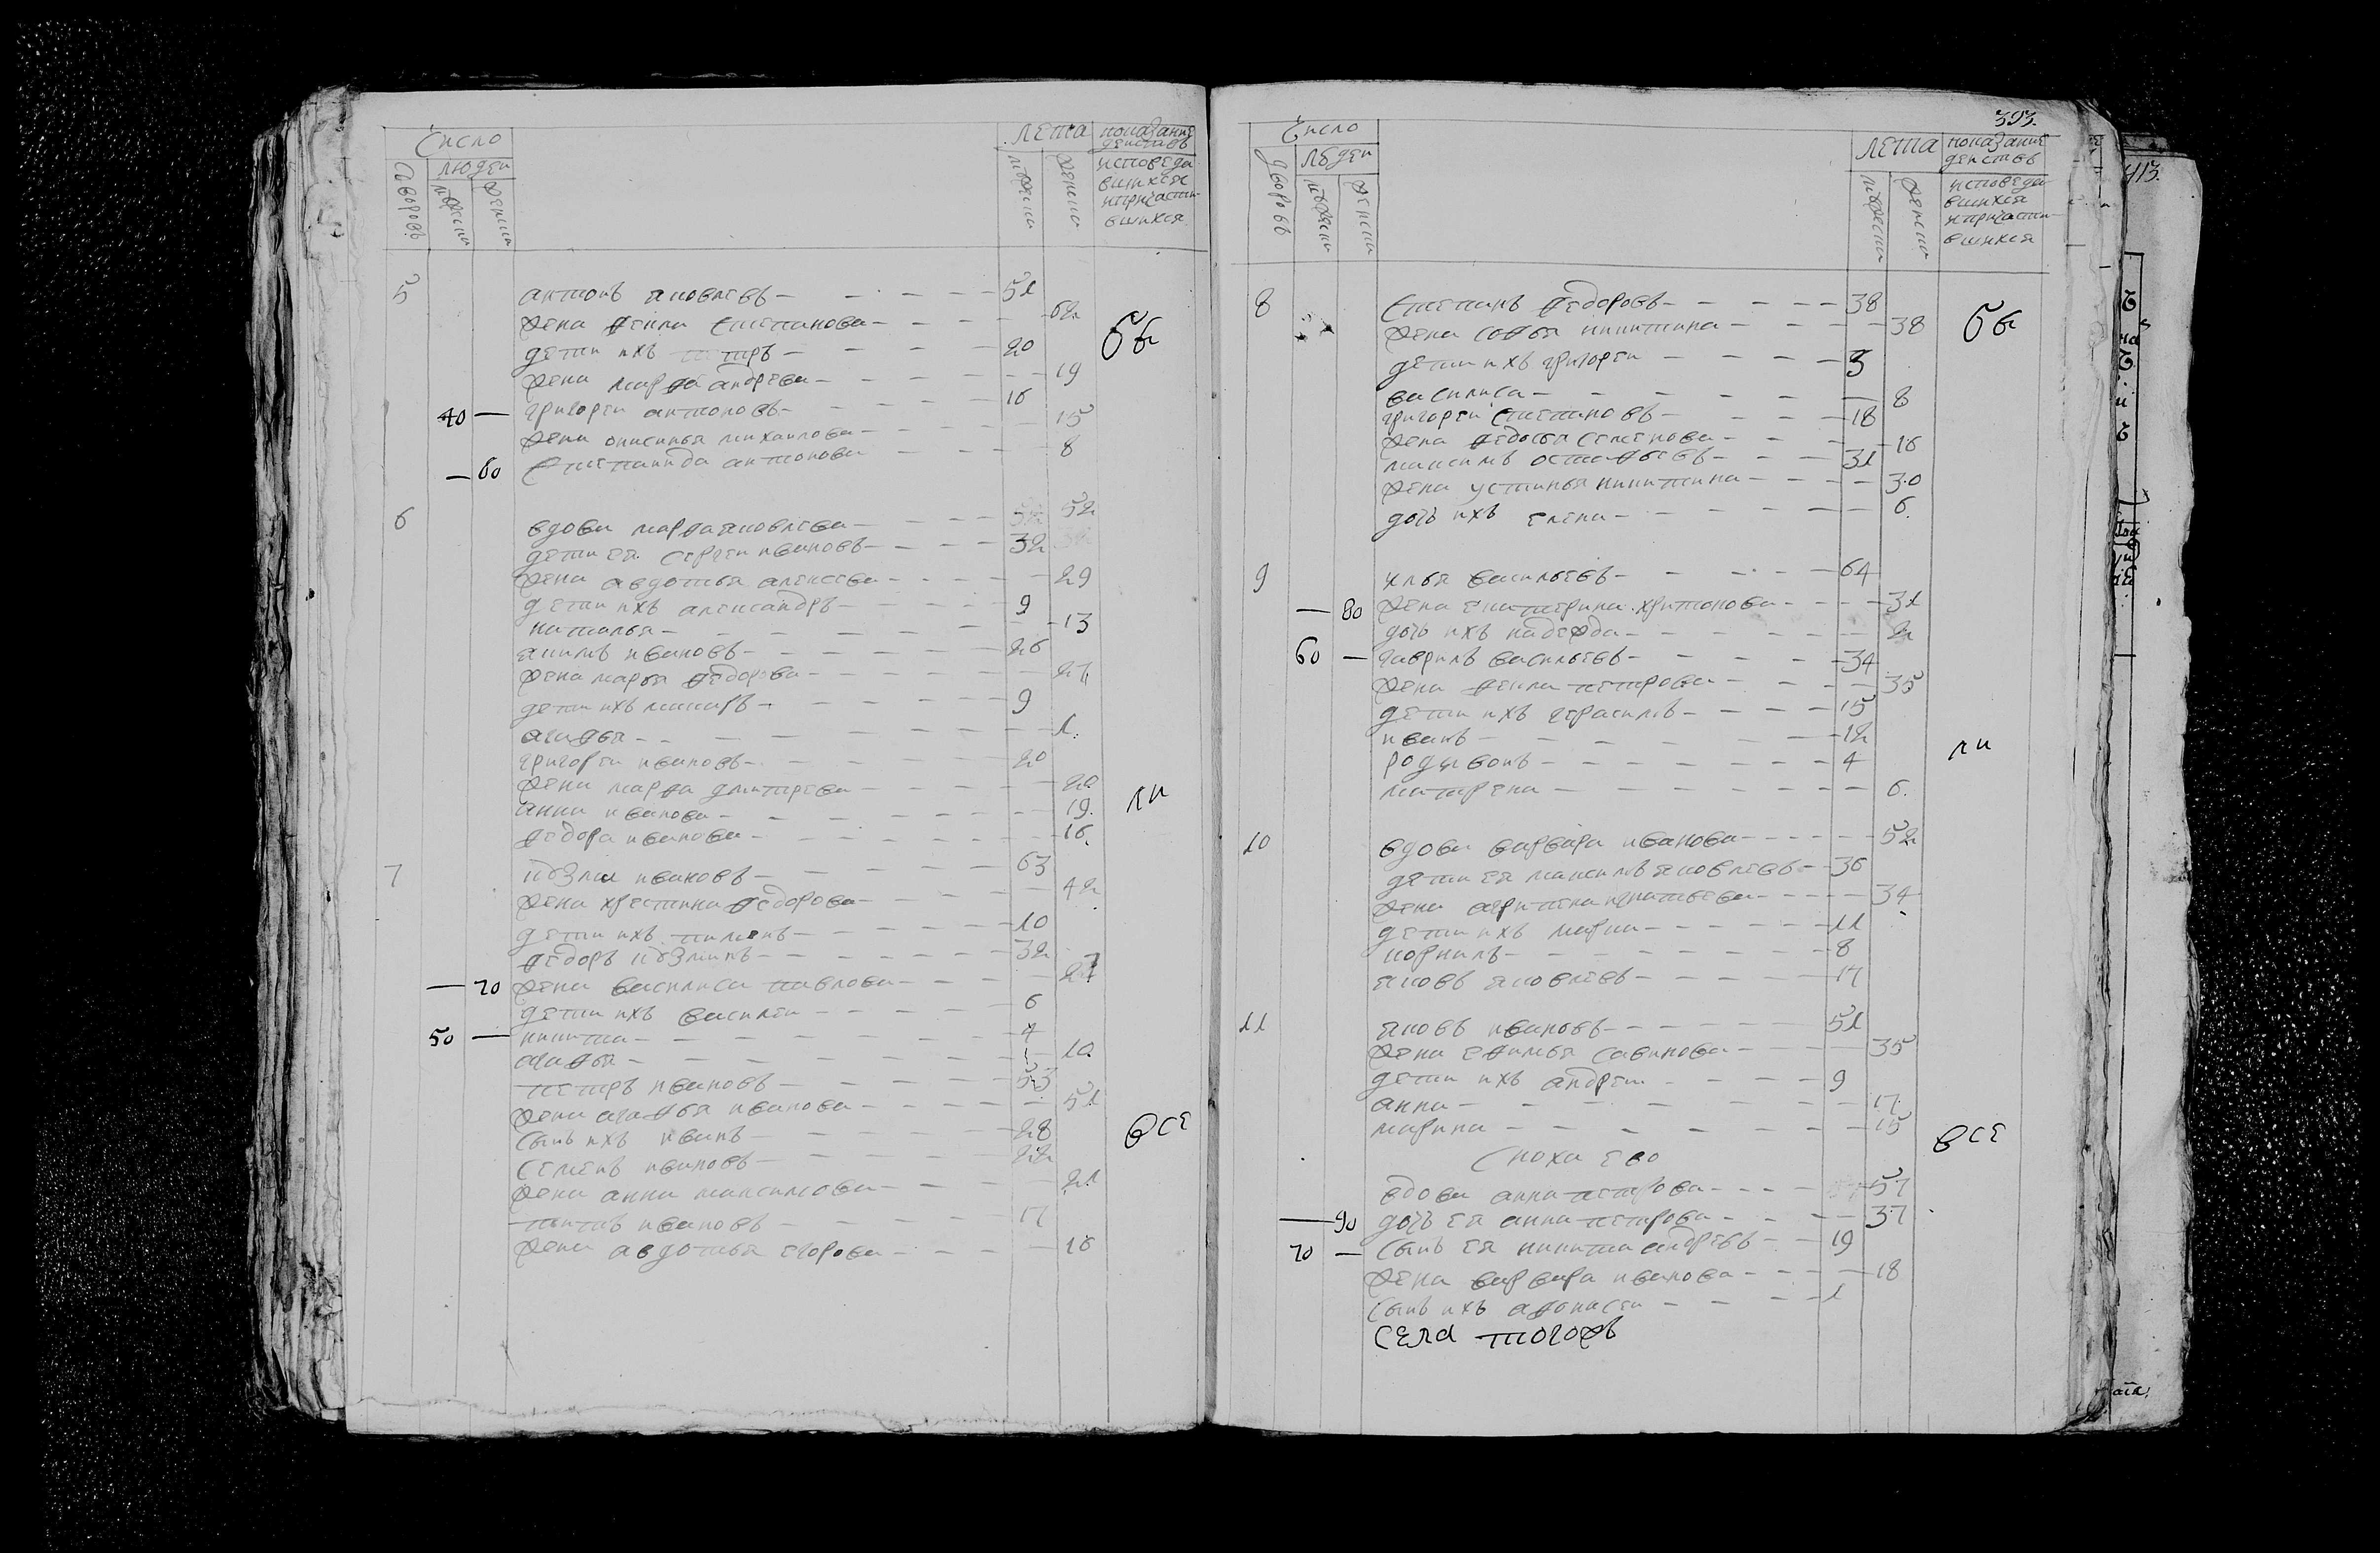 Число
люден
дворовъ
мужески
женски
лета
мужески
женски
показание
деиствъ
исповеда
вшихся
иприсасти
вшихся
5 антонъ яковлевъ 51
жена фекла степанова 52
дети ихъ петръ 20
жена марфа андреева 19
40 григореи антоновъ 16
жена онисинья михаилова 15
60 степанида антонова 8
бы
6 вдова марфа яковлева 52
дети ея сергеи ивановъ 32
жена авдотья алексеева 29
дети ихъ александръ 9
наталья 13
якимъ ивановъ 26
жена марья федорова 27
дети ихъ макаръ 9
агафья 1
григореи ивановъ 20
жена марфа дмитрева 20
анна иванова 19
федора иванова 16
ли
7 кузма ивановъ 63
жена хрестина федорова 42
дети ихъ пименъ 10
федоръ кузминъ 32
70 жена василиса павлова 27
дети ихъ василеи 6
50 никита 4
агафья 10
петръ ивановъ 53
жена агафья иванова 51
сынъ ихъ иванъ 28
семенъ ивановъ 22
жена анна максимова 21
титъ ивановъ 17
жена авдотья егорова 16
все
393.
Число
дворовъ
людеи
мужески
женски
лета
мужески
женски
показание
деиствъ
исповеда
вшихся
иприсасти
вшихся
8 степанъ федоровъ 38
жена софья никитина 38
дети ихъ григореи 3
василиса 8
григореи степановъ 18
жена федосья семенова 16
максимъ остафьевъ 31
жена устинья никитина 30
дочь ихъ елена 6.
бы
9 илья васильевъ 64
80 жена екатерина харитонова 31
дочь ихъ надежда 2
60 гаврилъ васильевъ 34
жена фекла петрова 35
дети ихъ герасимъ 15
иванъ 12
родивонъ 4
матрена 6.
ли
10 вдова варвара иванова 52
дети ея максимъ яковлевъ 36
жена агрипена игнатьева 34
дети ихъ марка 11
корнилъ 8
яковъ яковлевъ 17
11 яковъ ивановъ 51
жена ефимья савинова 35
дети ихъ андреи 9
анна 17
марина 15
сноха ево
вдова анна петрова 57
90 дочь ея анна петрова 37
70 сынъ ея никита андревъ 19
жена варвара иванова 18
сынъ ихъ афонасеи 1
все
села тогожъ
413.